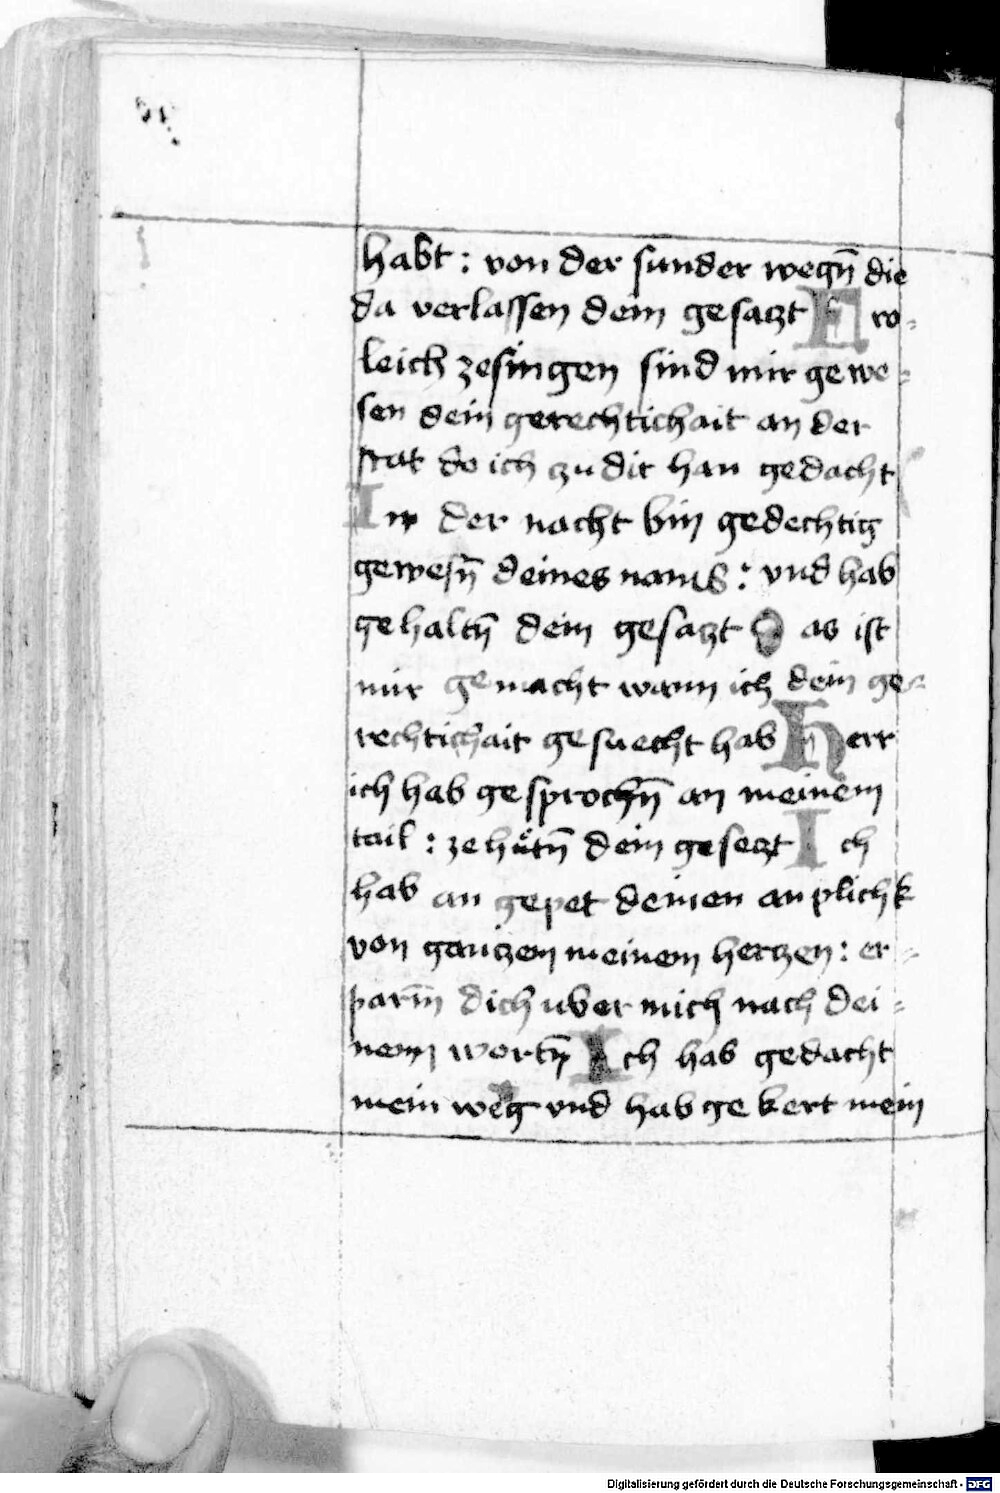 habt : von der sunder wegn̄ die
da verlassen dein gesaczt Fro-
leich zesingen sind mir gewe-
sen dein gerechtichait an der
stat do ich zu dir han gedacht
In der nacht bin gedechtig
gewesn̄ deines nams : vnd hab
gehaltn̄ dein gesaczt Das ist
mir gemacht wann ich dein ge-
rechtichait gesuecht hab herr
ich hab gesprochn̄ an meinem
tail : ze hütn̄ dein geseczt Ich
hab an gepet deinen anplichk
von ganczem meinem herczen : er-
parm̄ dich uber mich nach dei-
nem wortn̄ Ich hab gedacht
mein weg vnd hab gekert mein
Digitalisierung gefördert durch die Deutsche Forschungsgemeinschaft - DFG